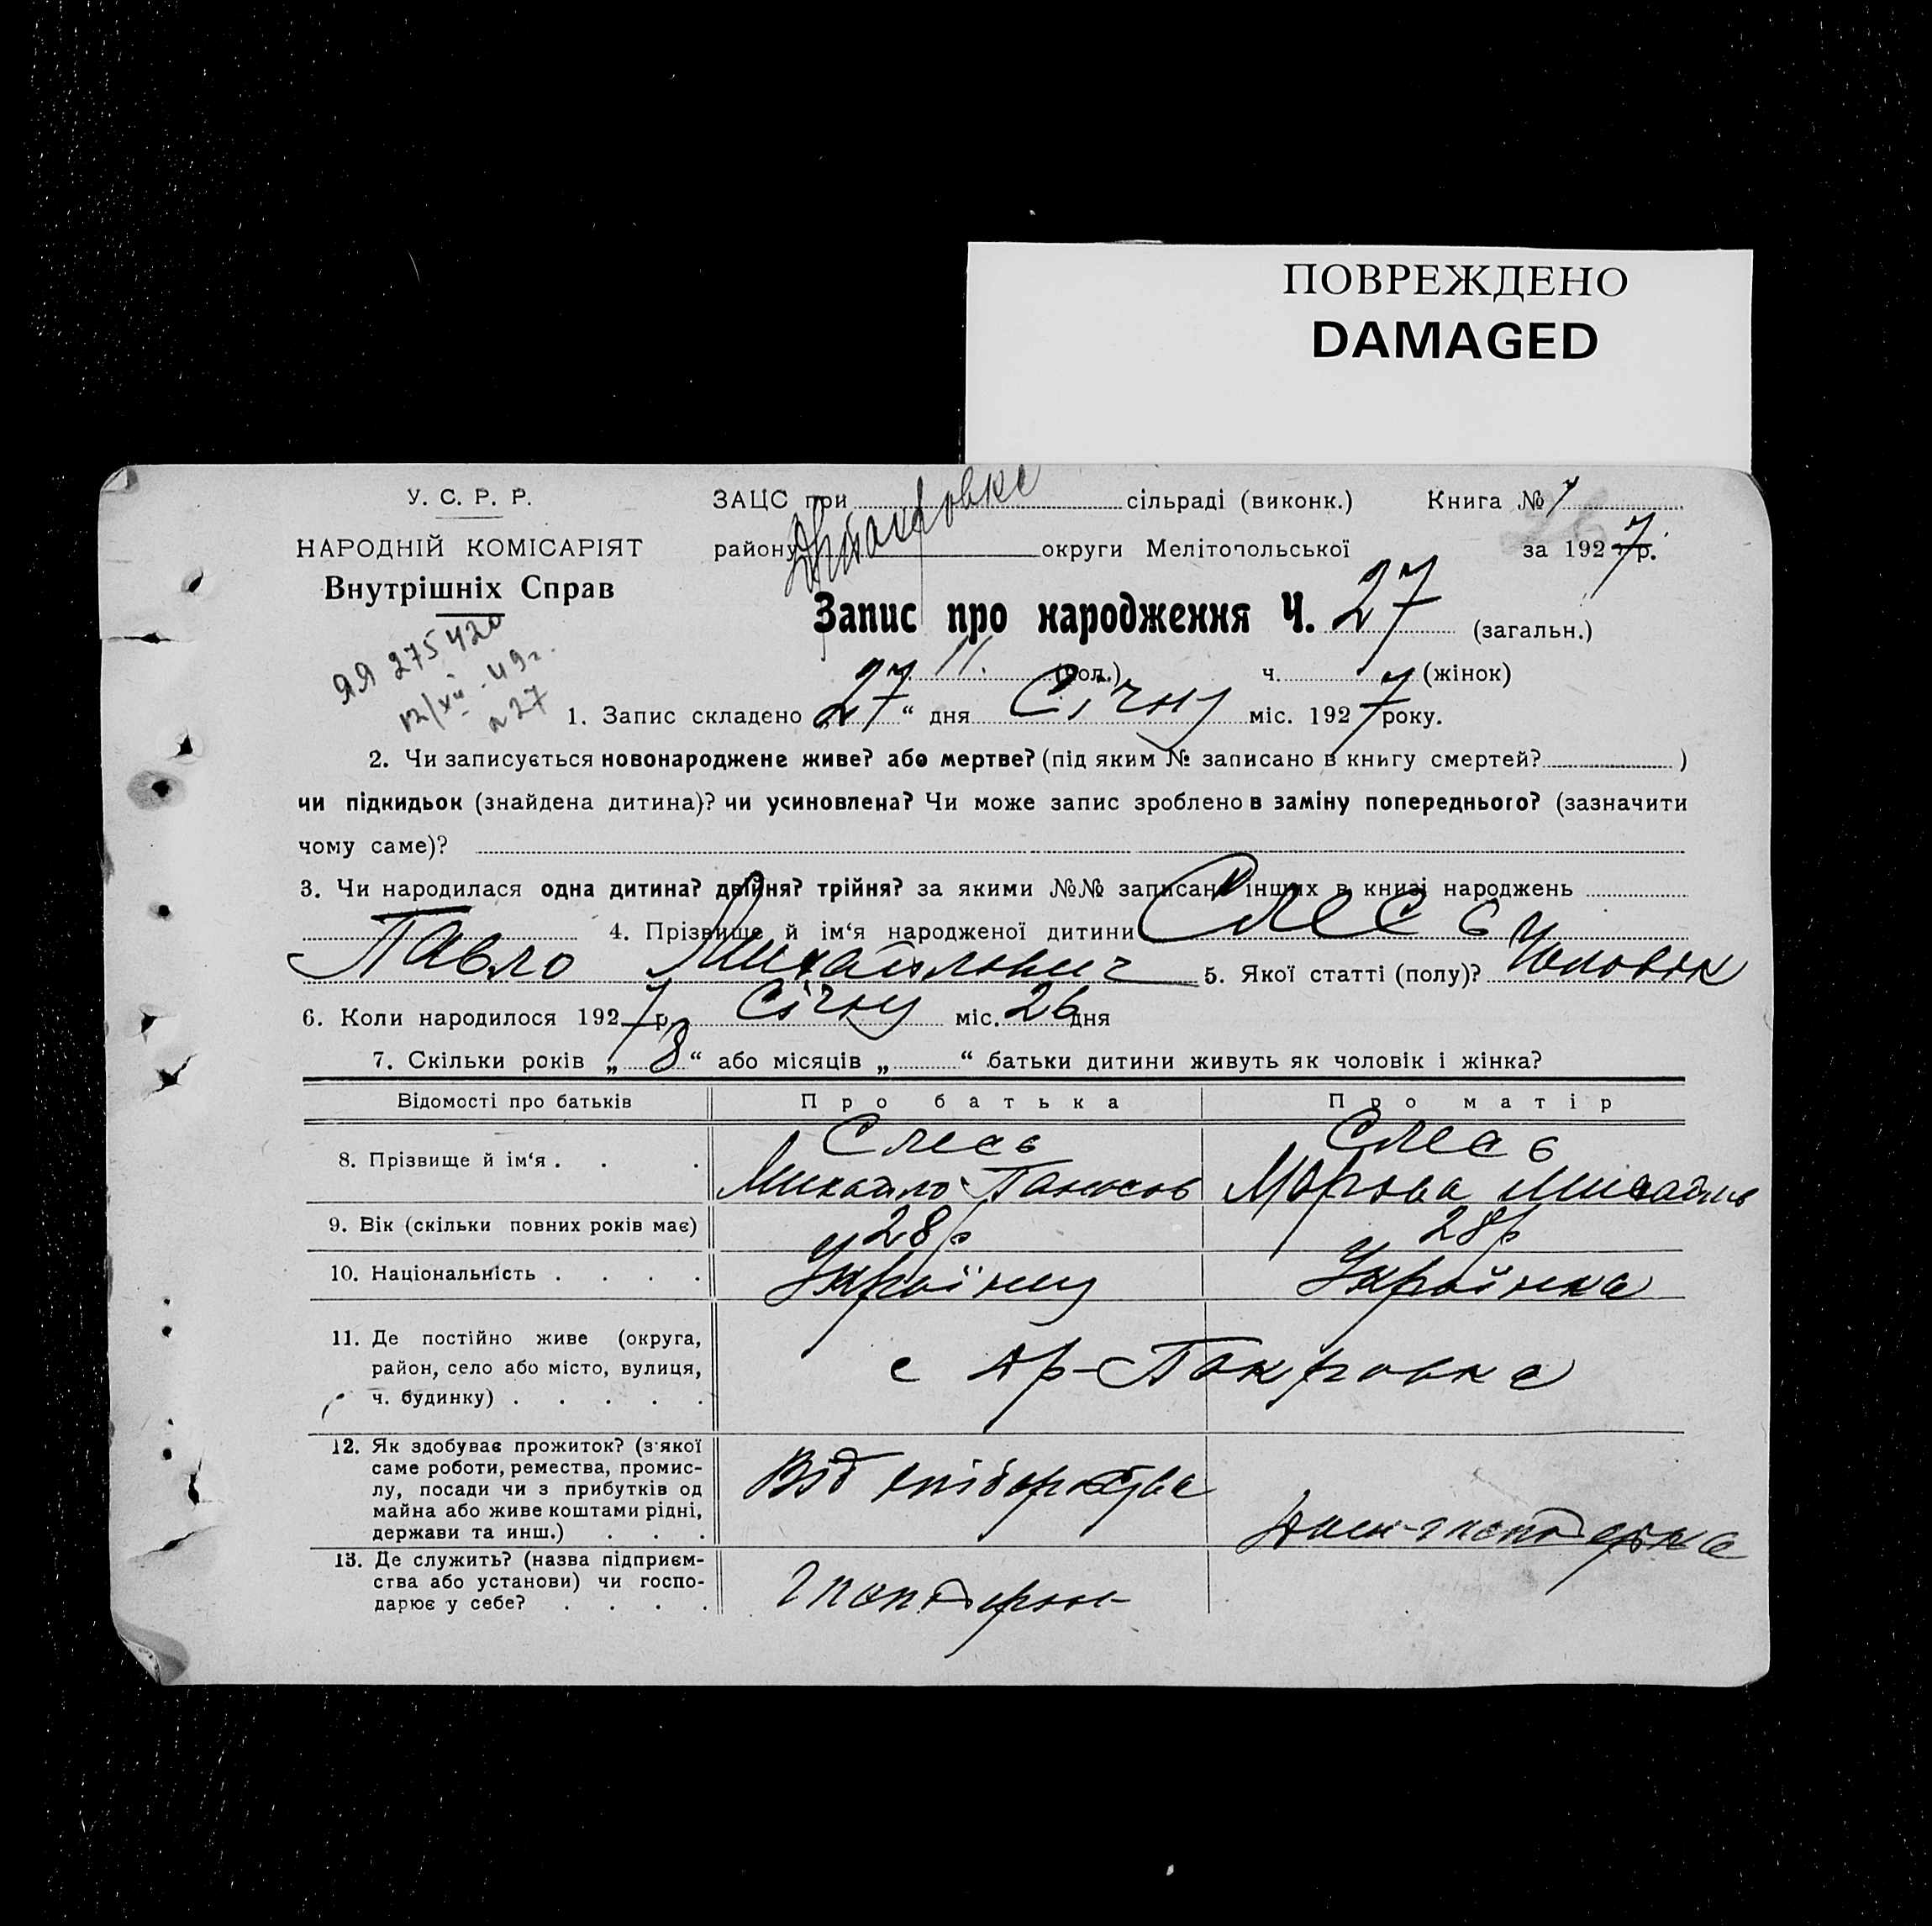 ПОВРЕЖДЕНО
DAMAGED
У. С. Р. Р.
НАРОДНІЙ КОМІСАРІЯТ
Внутрішніх Справ
ЯЯ 275420
12/XII - 49г.
27
ЗАЦС при сільраді (виконк.) Книга № 1
району округи Мелітопольської за 1927 р.
Запис про народження Ч. 27 (загальн.)
11. (чол.) ч. (жінок)
1. Запис складено „27“ дня Січну міс. 1927 року.
2. Чи записується новонароджене живе? або мертве? (під яким № записано в книгу смертей? )
чи підкидьок (знайдена дитина)? чи усиновлена? Чи може запис зроблено в заміну попереднього? (зазначити
чому саме)?
3. Чи народилася одна дитина? двійня? трійня? за якими №№ записано інших в книзі народжень
4. Прізвище й ім‘я народженої дитини Слесь
Павло Михайлович 5. Якої статті (полу)? Чоловік
6. Коли народилося 1927 р. Січну міс. 26 дня
7. Скільки років „ 8 “ або місяців „ “ батьки дитини живуть як чоловік і жінка?
Відомості про батьків Про батька Про матір
8. Прізвище й ім‘я . . . Слесь Слесь
Михайло Панасов Михайлів
9. Вік (скільки повних років має) 28 р 28 р
10. Національність . . . . Українец Українка
11. Де постійно живе (округа,
район, село або місто, вулиця,
ч. будинку) . . . . .
с Покровка
12. Як здобуває прожиток? (з‘якої
саме роботи, ремества, промис-
лу, посади чи з прибутків од
майна або живе коштами рідні,
держави та инш.) . . .
Від
13. Де служить? (назва підприєм-
ства або установи) чи госпо-
дарює у себе? . . . .